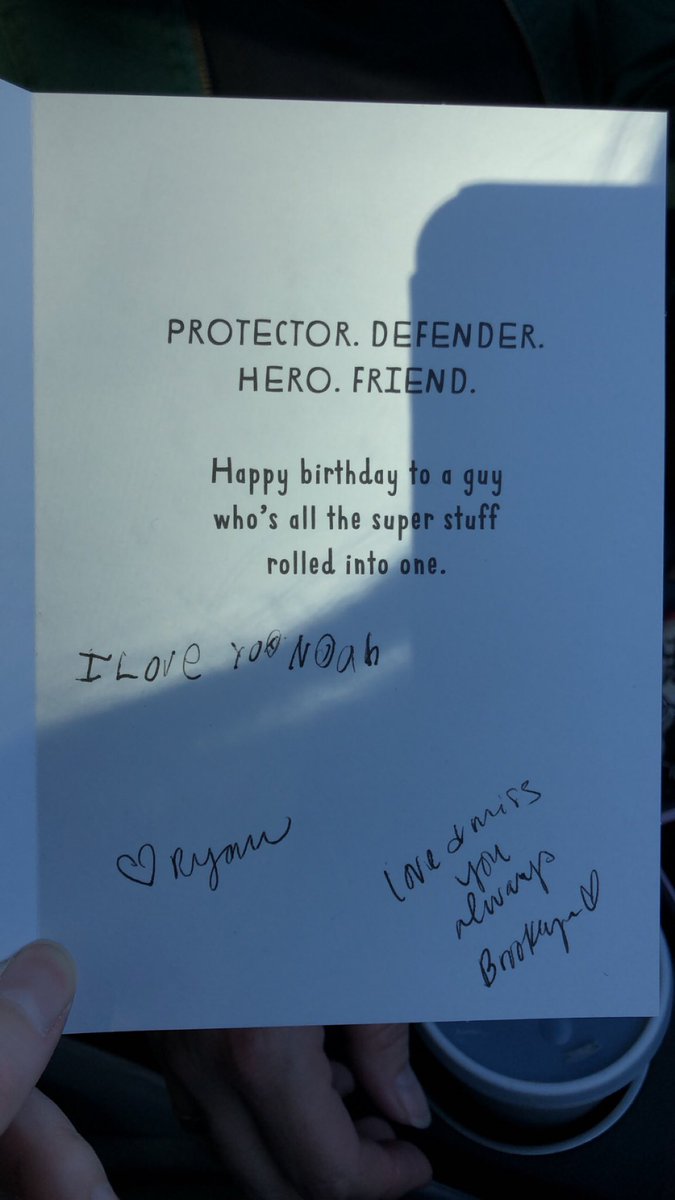 PROTECTOR. DEFENDER.
HERO. FRIEND.
Happy birthday to a guy
who's all the super stuff
rolled into one.
I LOVE YOO NOah
♡ Ryan
love & miss
you
always
Brooklyn ♡